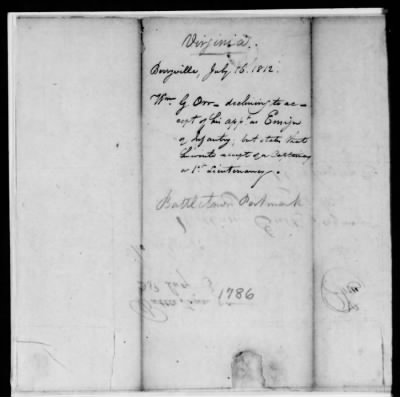 Virginia.
Berryville, July 16. 1812.
Wm G. Orr - declining to ac-
cept of his appt. as Ensign
of Infantry, but states that
he wou'd accept of a Captaincy
or 1st Lieutenancy.
Battletown Postmark
1786